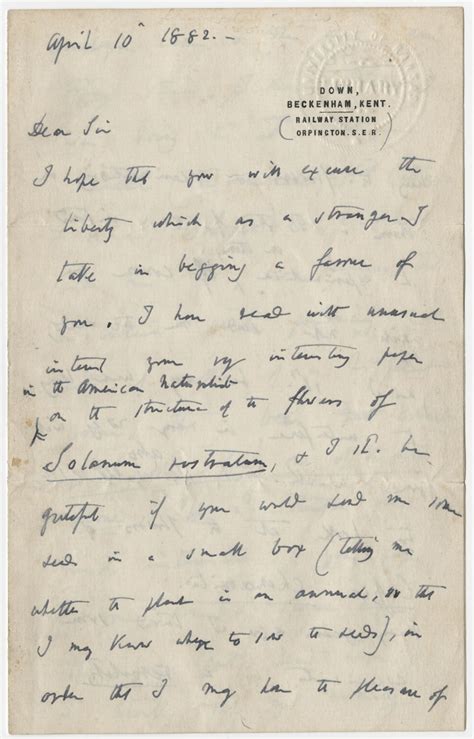 April 10th 1882.—
DOWN,
BECKENHAM, KENT.
(RAILWAY STATION
ORPINGTON. S.E.R.)
Dear Sir
I hope tht you will excuse the
liberty which as a stranger I
take in begging a favour of
you. I have read with unusual
interest your vy interesting paper
in the American Naturalist
on the structure of the flowers of
Solanum rostratum, & I shd. be
grateful if you would send me some
seeds in a small box (telling me
whether the plant is an annual, so that
I may know when to sow the seeds), in
order tht I may have the pleasure of